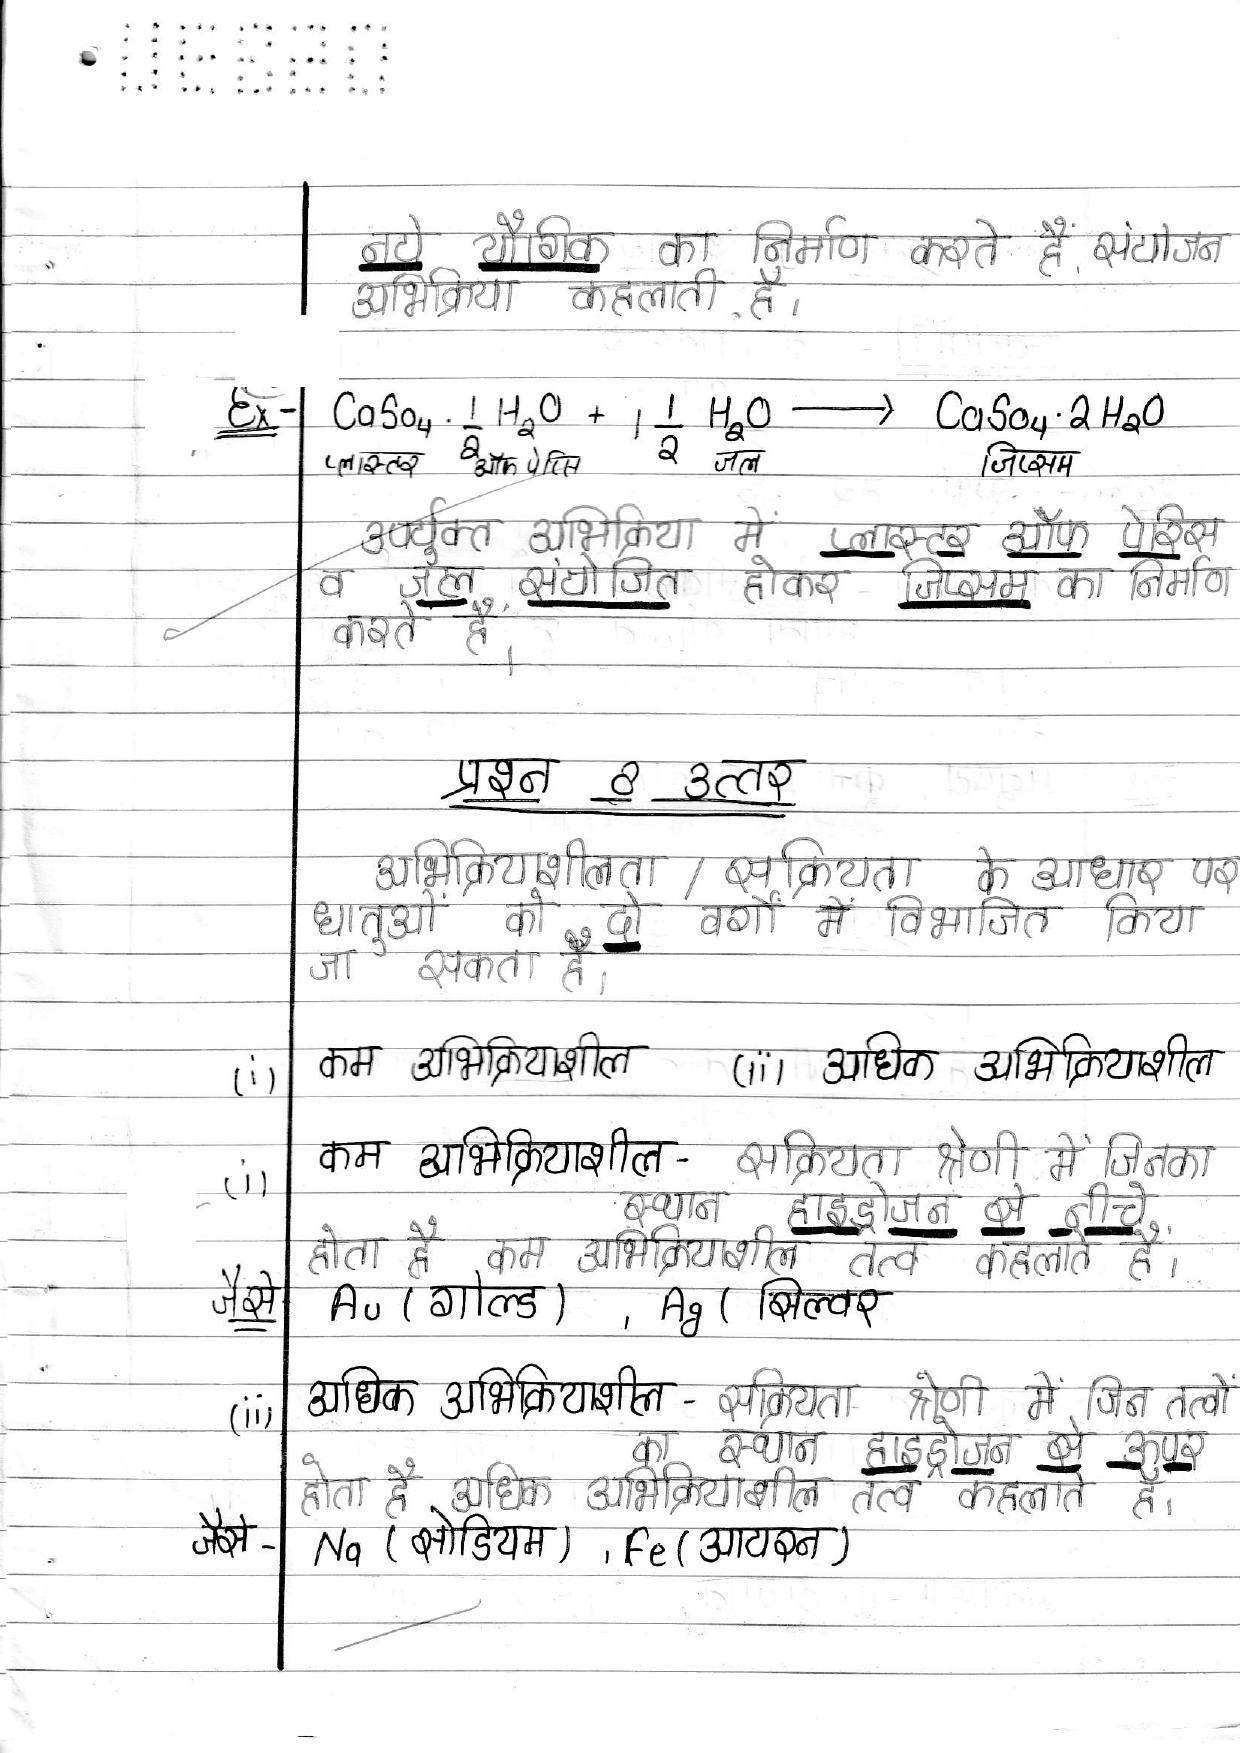 नये यौगिक का निर्माण करते हैं, संयोजन
अभिक्रिया कहलाती है।
Ex- CaSo4 . 1/2 H2O + 1 1/2 H2O ⟶ CaSo4 . 2H2O
प्लास्टर ऑफ पेरिस जल जिप्सम
उपर्युक्त अभिक्रिया में प्लास्टर ऑफ पेरिस
व जल संयोजित होकर जिप्सम का निर्माण
करते हैं।
प्रश्न 8 उत्तर
अभिक्रियाशीलता / सक्रियता के आधार पर
धातुओं को दो वर्गों में विभाजित किया
जा सकता है।
(i) कम अभिक्रियाशील (ii) अधिक अभिक्रियाशील
(i) कम अभिक्रियाशील - सक्रियता श्रेणी में जिनका
स्थान हाइड्रोजन से नीचे
होता है कम अभिक्रियाशील तत्व कहलाते हैं।
जैसे Au (गोल्ड) , Ag ( सिल्वर
(ii) अधिक अभिक्रियाशील - सक्रियता श्रेणी में जिन तत्वों
का स्थान हाइड्रोजन से ऊपर
होता है अधिक अभिक्रियाशील तत्व कहलाते हैं।
जैसे - Na (सोडियम) , Fe (आयरन)